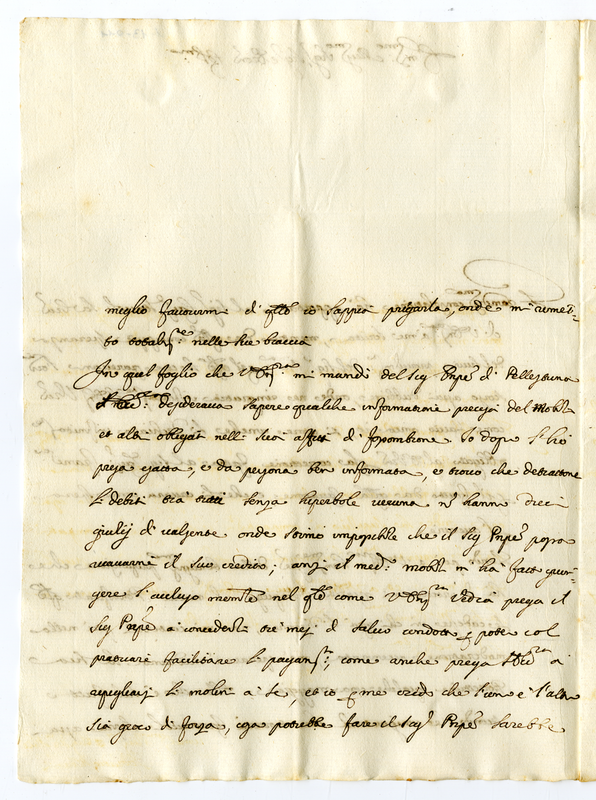 meglio favorirmi di q.to io sappia pregarla, onde mi rimet-
to totalm.e nelle sue braccia
In quel foglio che V.S. Ill.ma mi mandò del Sig Pnpe di
desiderava sapere qualche informatione precisa del Mobili
et altri obligati nelli suoi affitti di Io dopo l'hò
presa esatta, e da persona ben informata, e trovo che detrattone
li debiti trà tutti senza hiperbole veruna n' hanno dieci
giulij di valsente onde stimo impossibile che il Sig Pnpe possa
ricavarne il suo credito; anzi il med: Mobili m' hà fatto giun-
gere l' nel come V.S. Ill.ma vedrà prega il
Sig Pnpe à concederli trè mesi di salvo condotto p poter col
procurare facilitare li pagam.ti, come anche prega à
repigliarsi li molini à se, et io p me credo che l'uno e l'altro
sia gioco di forza, cosa potrebbe fare il Sig Pnpe sarebbe